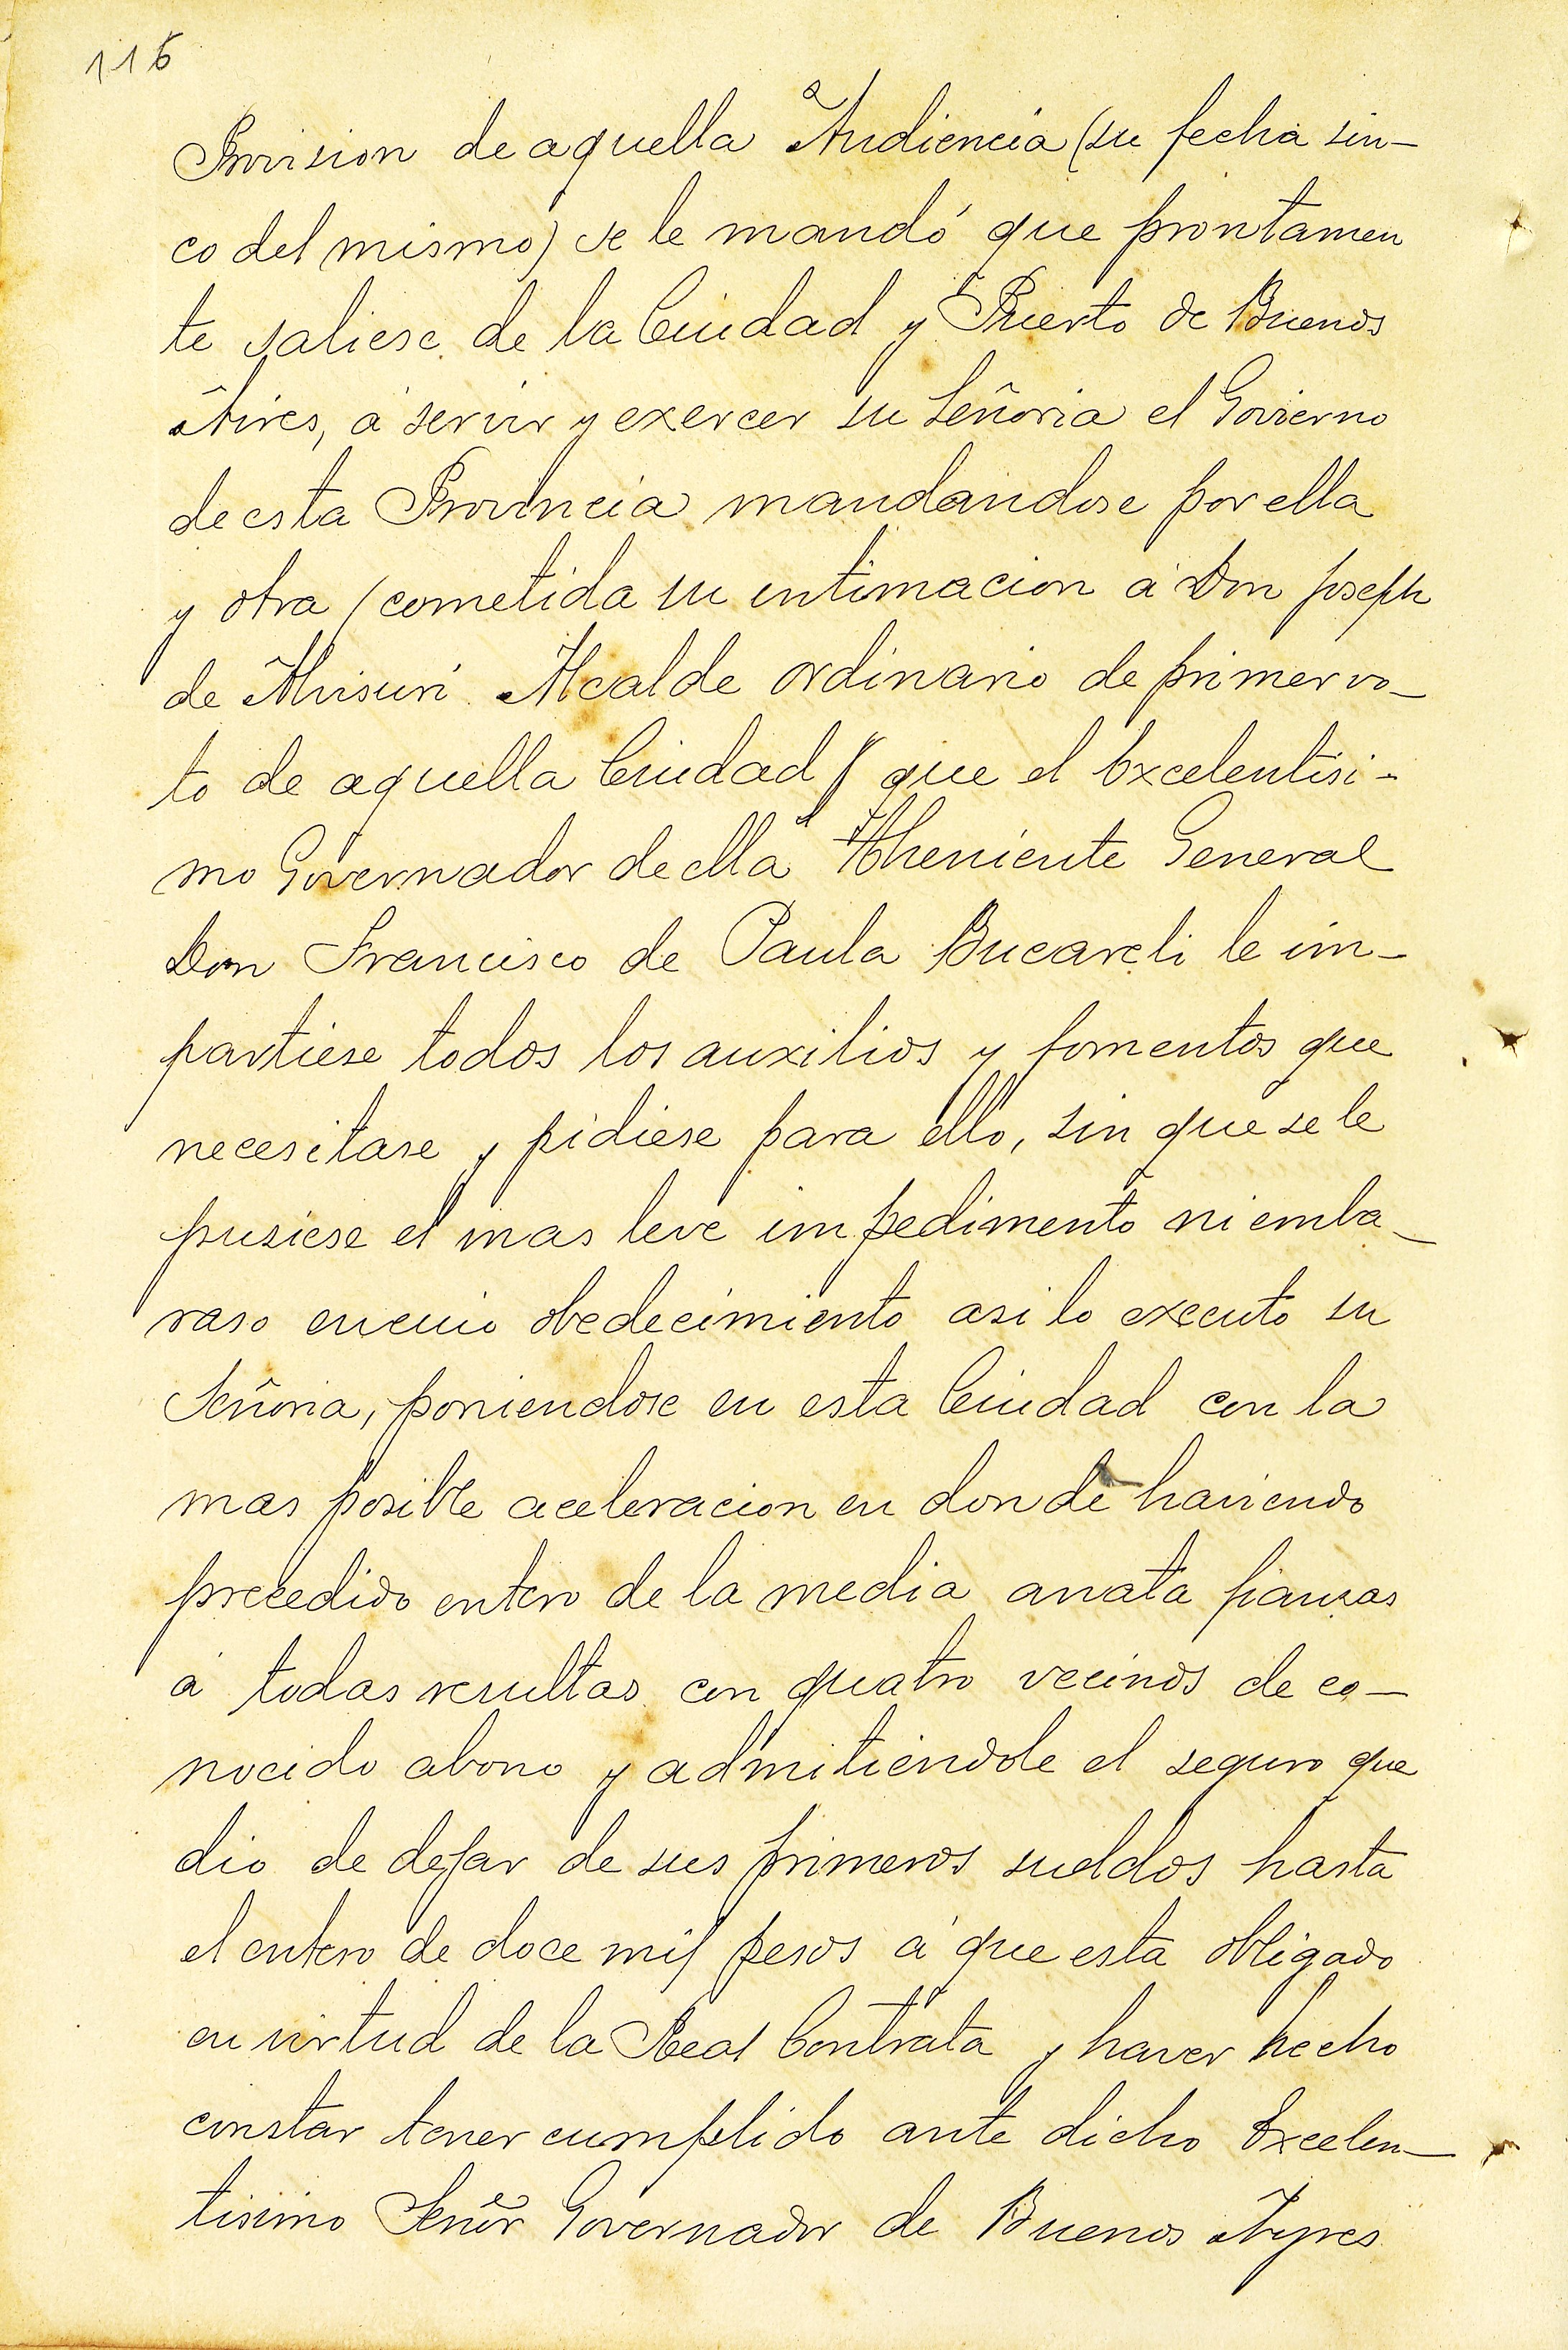 116
Provision de aquella Audiencia (su fecha sin-
co del mismo) se le mandó que prontamen
te saliese de la Ciudad y Puerto de Buenos
Aires, á servir y exercer su Señoria el Govierno
de esta Provincia mandandose por ella
y otra (cometida su intimacion á Don Joseph
de Alcalde ordinario de primer vo-
to de aquella Ciudad) que el Excelentisi-
mo Governador de ella Theniente General
Don Francisco de Paula Bucareli le im-
partiese todos los auxilios y fomentos que
necesitase y pidiese para ello, sin que se le
pusiese el mas leve impedimento ni emba-
raso en cuio obedecimiento asi lo executo su
Señoria, poniendose en esta Ciudad con la
mas posible aceleracion en donde haviendo
precedido entero de la media anata fianzas
á todas resultas con quatro vecinos de co-
nocido abono y admitiendole el seguro que
dio de dejar de sus primeros sueldos hasta
el entero de doce mil pesos á que esta obligado
en virtud de la Real Contrata y haver hecho
constar tener cumplido ante dicho Excelen-
tisimo Señor Governador de Buenos Ayres